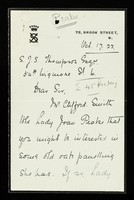 Peake
75, BROOK STREET,
W.
Oct. 17. 22.
E.J.S. Thompson Esqr
Dear Sir,
Mr Clifford Smith
tells Lady Joan Peake that
you might be interested in
some old oak panelling
she has. If so, Lady